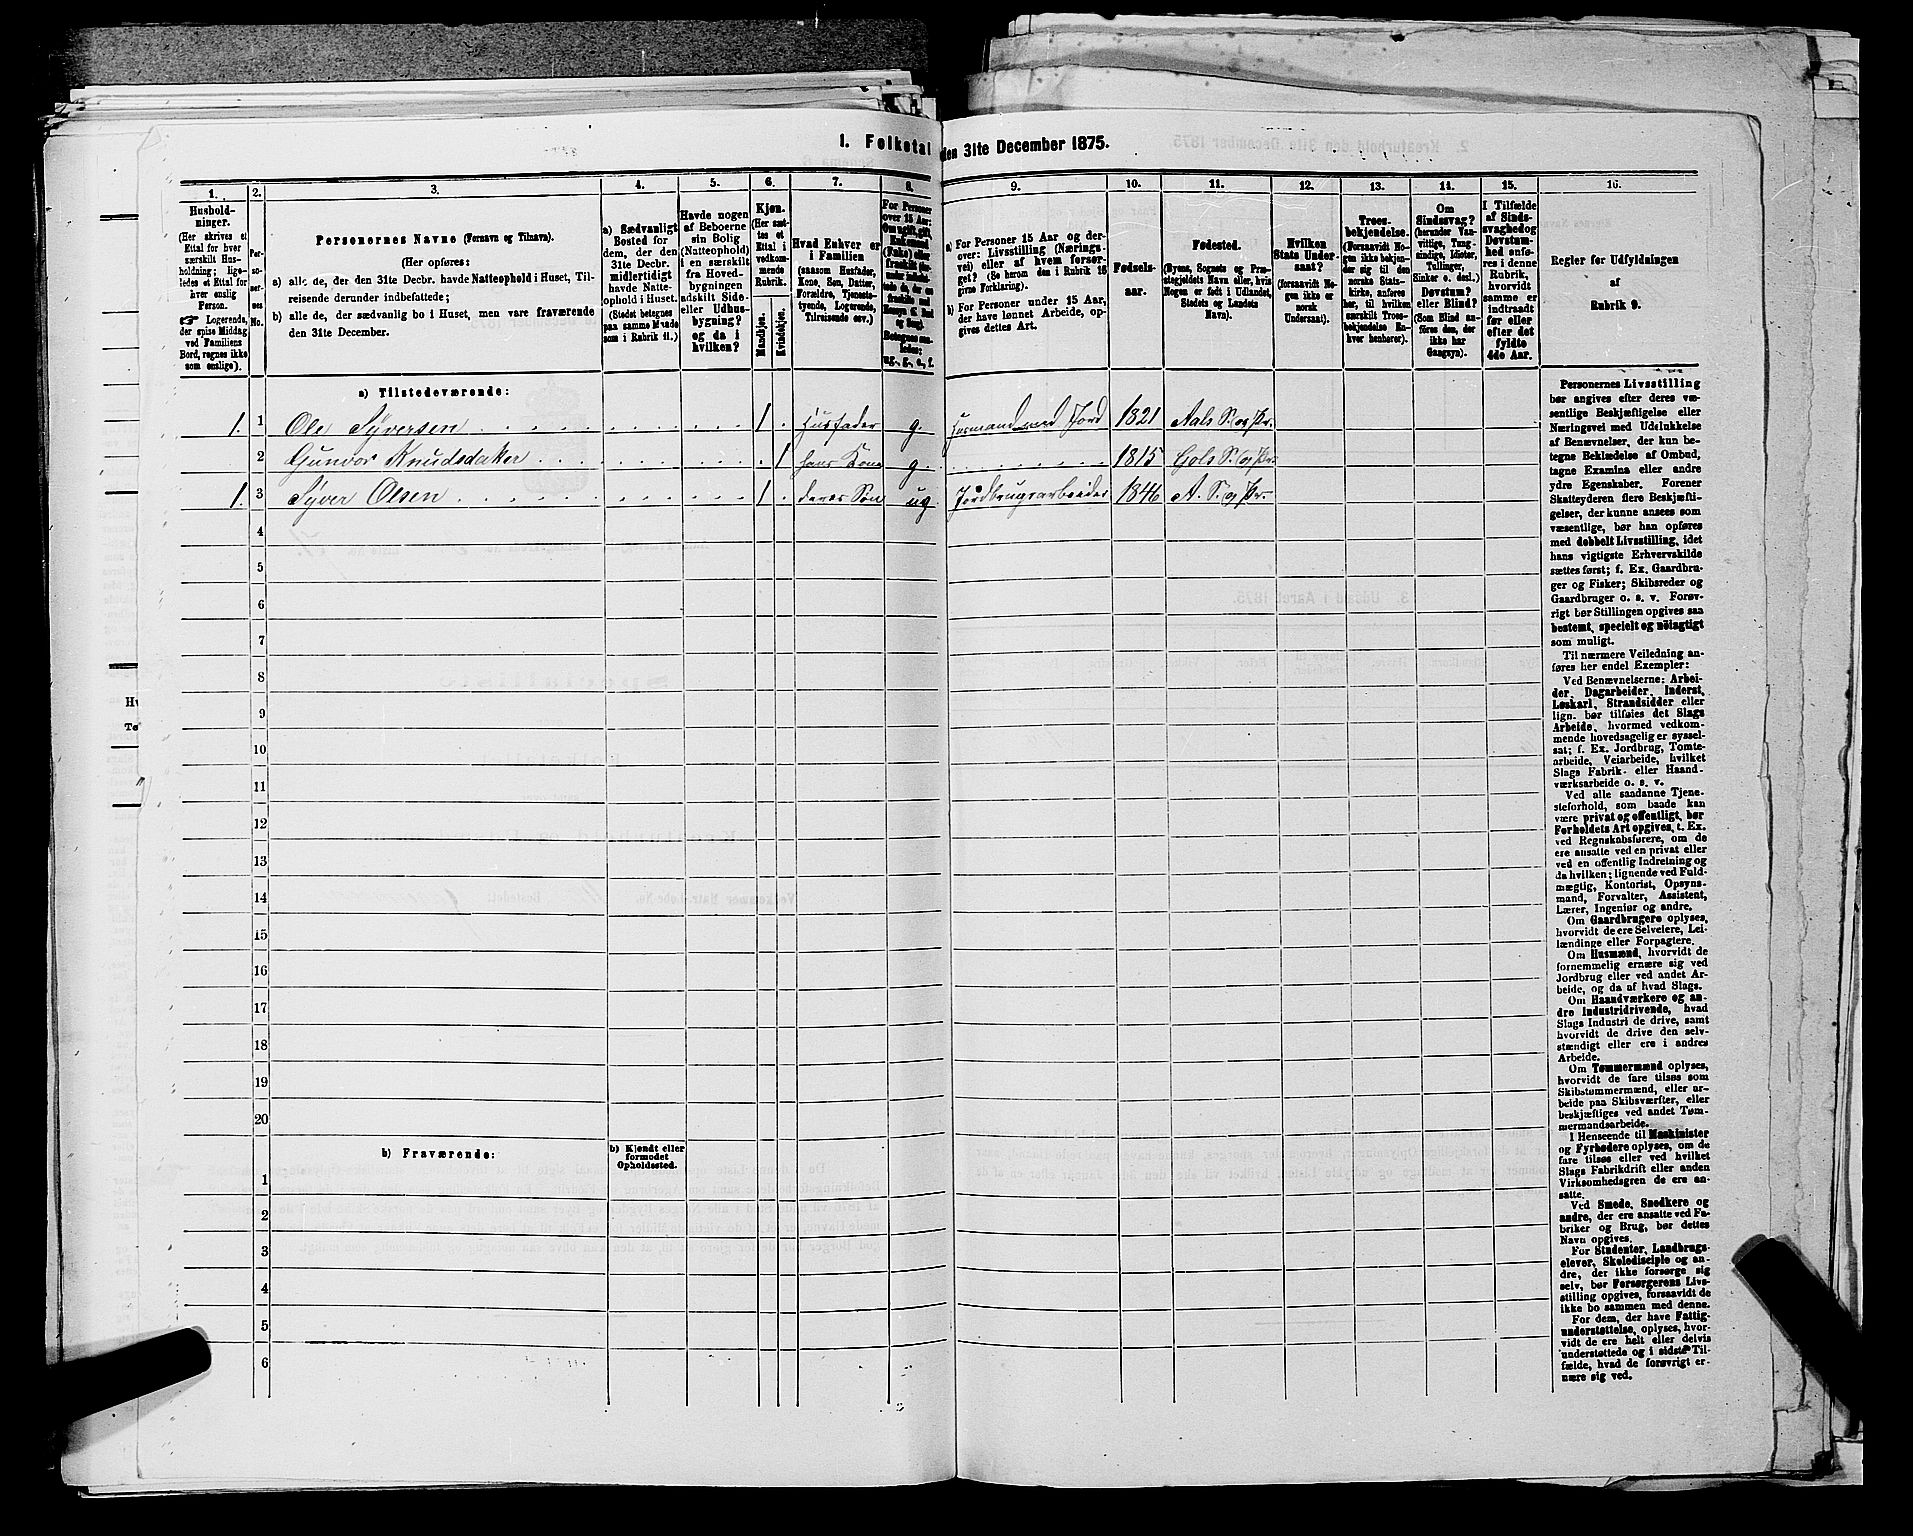 1. Folketal den 31te December 1875.
1. 2. 3. 4. 5. 6. 7. 8. 9. 10. 11. 12. 13. 14. 15. 16.
Hushold-
ninger.
(Her skrives et
Ettal for hver
særskilt Hus-
holdning; lige-
ledes et Ettal for
hver enslig
Person.
☞ Logerende,
der spise Middag
ved Familiens
Bord, regnes ikke
som enslige).
Per-
so-
ner-
nes
No.
Personernes Navne (Fornavn og Tilnavn).
(Her opføres:
a) alle de, der den 31te Decbr. havde Natteophold i Huset, Til-
reisende derunder indbefattede;
b) alle de, der sædvanlig bo i Huset, men vare fraværende
den 31te December.
a) Sædvanligt
Bosted for
dem, der den
31te Decbr.
midlertidigt
havde Natte-
ophold i Huset.
(Stedet betegnes
paa samme Maade
som i Rubrik 11.)
Havde nogen
af Beboerne
sin Bolig
(Natteophold)
i en særskilt
fra Hoved-
bygningen
adskilt Side-
eller Udhus-
bygning?
og da i
hvilken?
Kjøn.
(Her sæt-
tes et
Ettal i
vedkom-
mende
Rubrik.
Mandkjøn.
Kvindekjøn.
Hvad Enhver er
i Familien
(saasom Husfader,
Kone, Søn, Datter,
Forældre, Tjeneste-
tyende, Logerende,
Tilreisende osv.)
For Personer
over 15 Aar:
Om ugift, gift,
Enkemand
(Enke) eller
fraskilt
Betegnes saa-
ledes:
ug., g., e., f.
a) For Personer 15 Aar og der-
over: Livsstilling (Nærings-
vei) eller af hvem forsør-
get? (Se herom den i Rubrik 16
givne Forklaring).
b) For Personer under 15 Aar,
der have lønnet Arbeide, op-
gives dettes Art.
Fødsels-
aar.
Fødested.
(Byens, Sognets og Præ-
stegjeldets Navn eller, hvis
Nogen er født i Udlandet,
Stedets og Landets
Navn).
Hvilken
Stats Under-
saat?
(forsaavidt No-
gen ikke er
norsk
Undersaat).
Troes-
bekjendelse.
(Forsaavidt No-
gen ikke bekjen-
der sig til den
norske Stats-
kirke, anføres
her, til hvilken
særskilt Troes-
bekjendelse En-
hver henhører).
Om
Sindssvag?
(herunder Van-
vittige, Tung-
sindige, Idioter,
Tullinger,
Sinker o. desl.)
Døvstum?
eller Blind?
(Som Blind an-
føres den, der
ikke har
Gangsyn).
I Tilfælde
af Sinds-
svaghed og
Døvstum-
hed anfø-
res i denne
Rubrik,
hvorvidt
samme er
indtraadt
før eller
efter det
fyldte
4de Aar.
Regler for Udfyldningen
af
Rubrik 9.
a) Tilstedeværende:
1. 1 Ole Syversen 1 Husfader g. Husmand med Jord 1821 Aals S. og Pr.
2 Gunvor Knudsdatter 1 hans Kone g. 1815 Gols S. og Pr.
1. 3 Syver Olsen 1 deres Søn ug. Jordbrugsarbeider 1846 A. S. og Pr.
4
5
6
7
8
9
10
11
12
13
14
15
16
17
18
19
20
b) Fraværende: b) Kjendt eller
formodet
Opholdssted.
1
2
3
4
5
6
Personernes Livsstilling
bør angives efter deres væ-
sentlige Beskjæftigelse eller
Næringsvei med Udelukkelse
af Benævnelser, der kun be-
tegne Beklædelse af Ombud,
tagne Examina eller andre
ydre Egenskaber. Forener
Skatteyderen flere Beskjæfti-
gelser, der kunne ansees som
væsentlige, bør han opføres
med dobbelt Livsstilling, idet
hans vigtigste Erhvervskilde
sættes først; f. Ex. Gaardbru-
ger og Fisker; Skibsreder og
Gaardbruger o. s. v. Forøv-
rigt bør Stillingen opgives saa
bestemt, specielt og nøiagtigt
som muligt.
Til nærmere Veiledning an-
føres her endel Exempler:
Ved Benævnelserne: Arbei-
der, Dagarbeider, Inderst,
Løskarl, Strandsidder eller
lign. bør tilføies det Slags
Arbeide, hvormed vedkom-
mende hovedsagelig er syssel-
sat; f. Ex. Jordbrug, Tomte-
arbeide, Veiarbeide, hvilket
Slags Fabrik- eller Haand-
værksarbeide o. s. v.
Ved alle saadanne Tjene-
steforhold, som baade kan
være privat og offentligt, bør
Forholdets Art opgives, t. Ex.
ved Regnskabsførere, om de
ere ansatte ved en privat eller
ved en offentlig Indretning og
da hvilken; lignende ved Fuld-
mægtig, Kontorist, Opsyns-
mand, Forvalter, Assistent,
Lærer, Ingeniør og andre.
Om Gaardbrugere oplyses,
hvorvidt de ere Selveiere, Lei-
lændinge eller Forpagtere.
Om Husmænd, hvorvidt de
fornemmelig ernære sig ved
Jordbrug eller ved andet Ar-
beide, og da af hvad Slags.
Om Haandværkere og an-
dre Industridrivende, hvad
Slags Industri de drive, samt
hvorvidt de drive den selv-
stændigt eller ere i andres
Arbeide.
Om Tømmermænd oplyses,
hvorvidt de fare tilsøs som
Skibstømmermænd, eller ar-
beide paa Skibsværfter, eller
beskjæftiges ved andet Tøm-
mermandsarbeide.
I Henseende til Maskinister
og Fyrbødere oplyses, om de
fare tilsøs eller ved hvilket
Slags Fabrikdrift eller anden
Virksomhedsgren de ere an-
satte.
Ved Smede, Snedkere og
andre, der ere ansatte ved Fa-
briker og Brug, bør dettes
Navn opgives.
For Studenter, Landbrugs-
elever, Skoledisciple og an-
dre, der ikke forsørge sig
selv, bør Forsørgerens Livs-
stilling opgives, forsaavidt de
ikke bo sammen med denne.
For dem, der have Fattig-
understøttelse, oplyses, hvor-
vidt de ere helt eller delvis
understøttede og i sidste Til-
fælde, hvad de forøvrigt er-
nære sig ved.